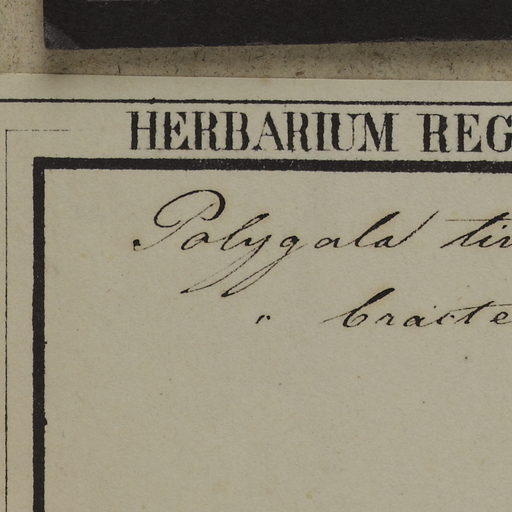 HERBARIUM REG
Polygala tin
" bracte